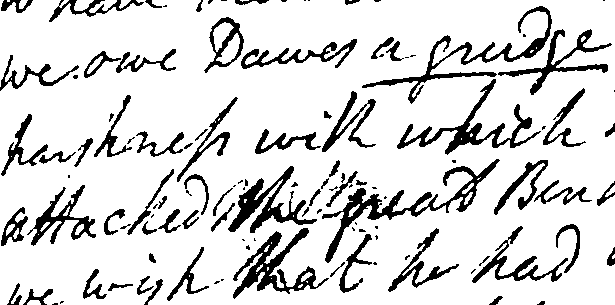 we owe Dawes a grudge
harshness with which
attacked the great Ben
we wish that he had